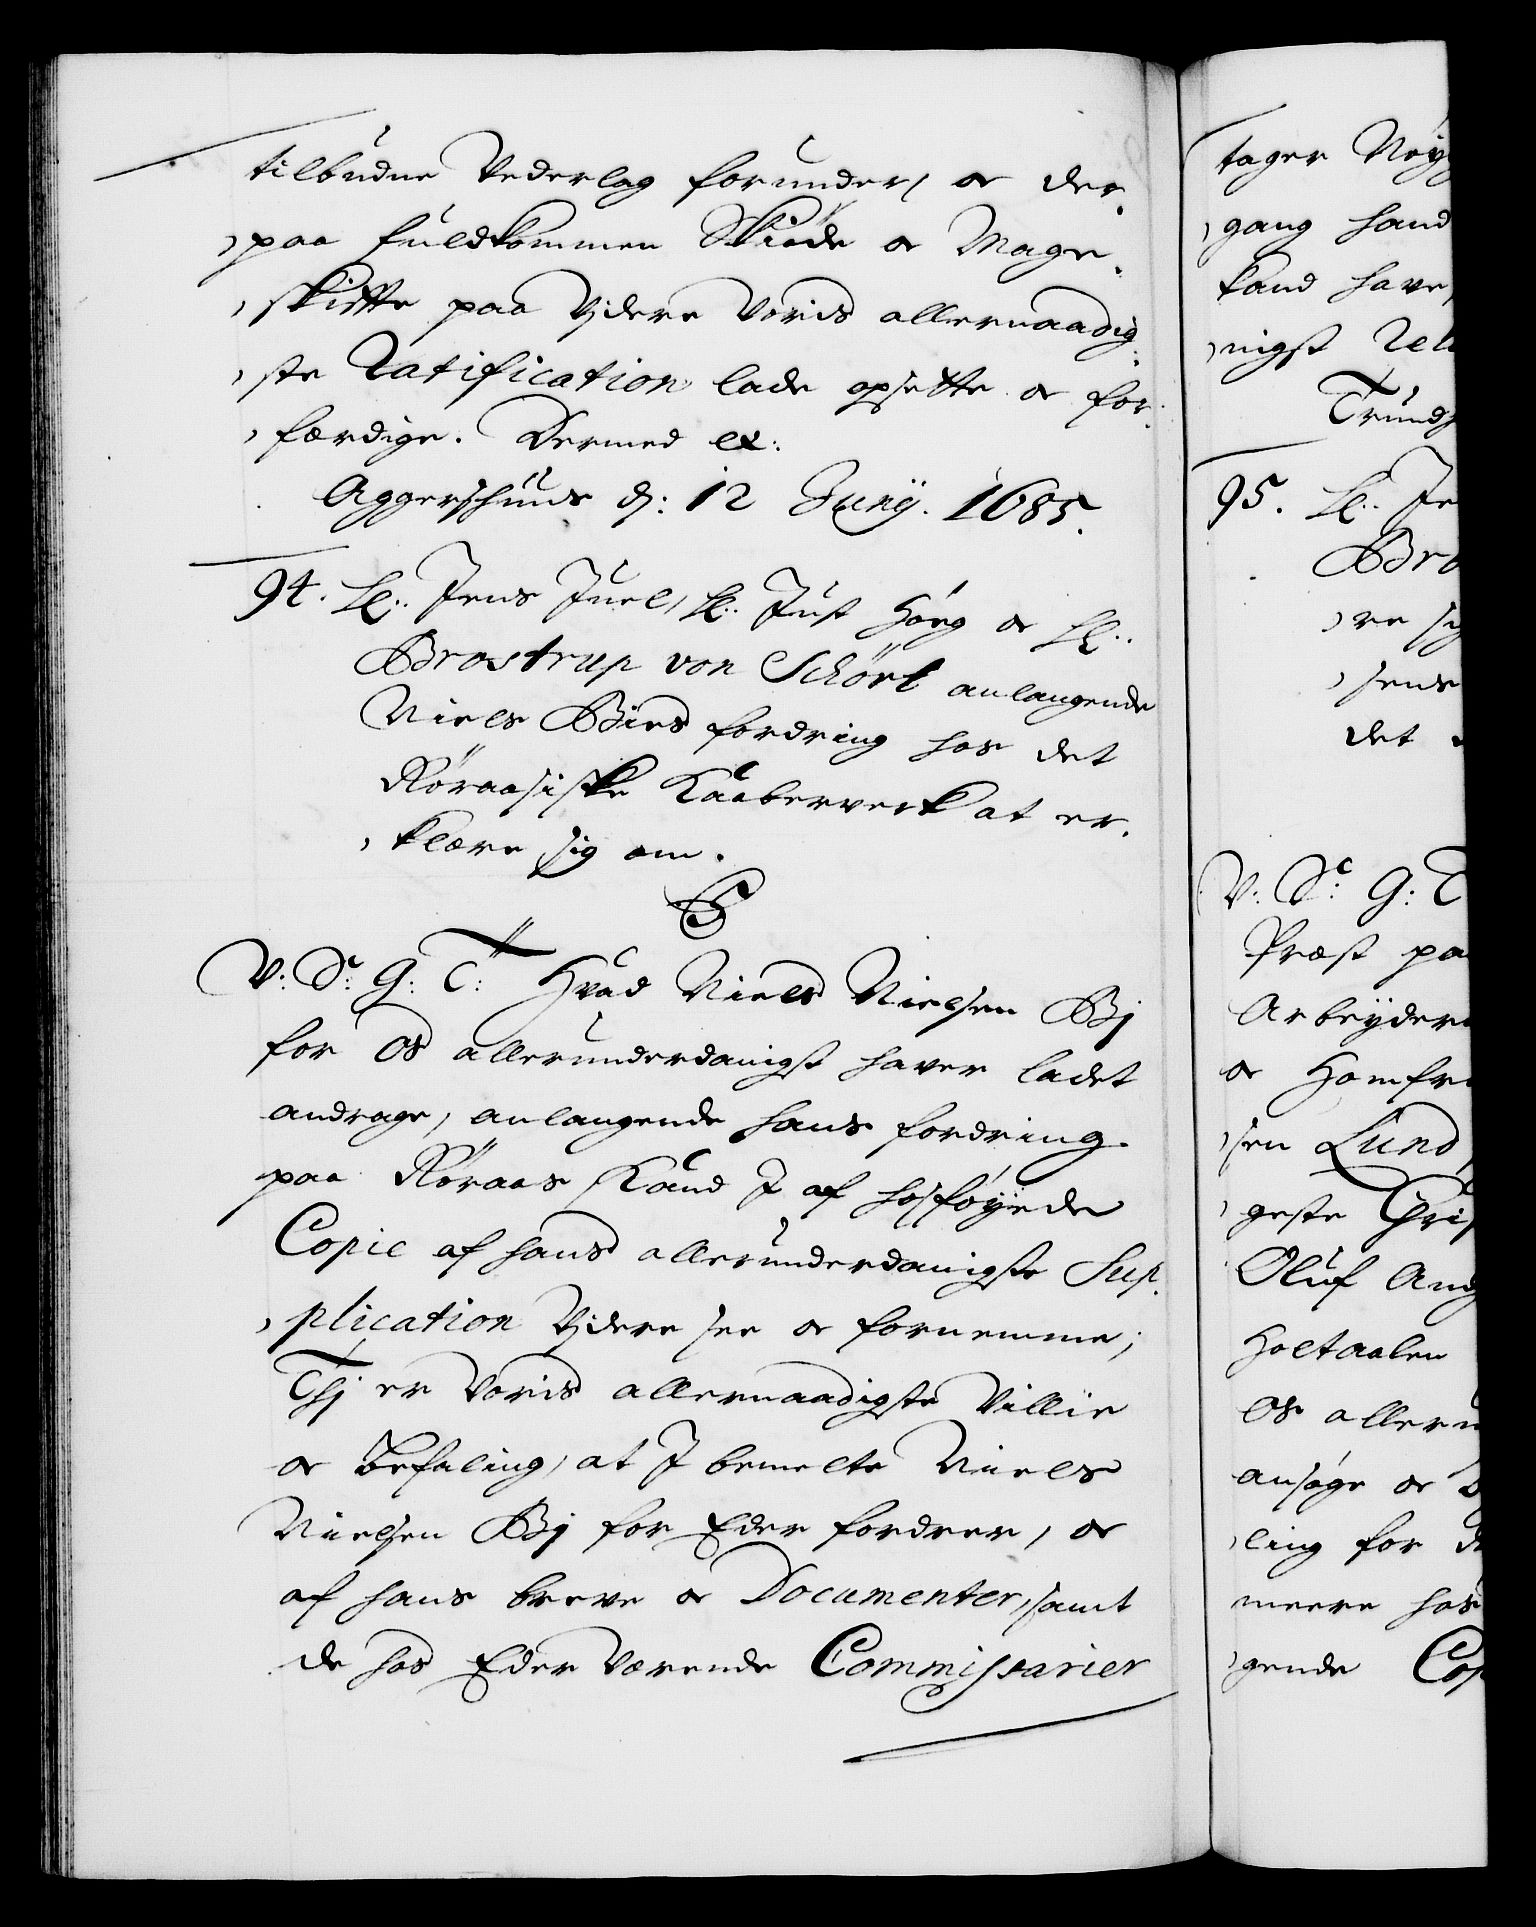 tilbudne Vederlag forunder, og der
paa fuldkommen Skiøde og Mage
skifte paa Videre Voris allernaadig
ste Ratification lade opsette og for
færdige. Dermed etc:
Aggershuus d: 12 Junij. 1685.
94. Hr: Jens Juel, Hr: Just Høeg og Hr:
Brostrup von Schört anlangende
Niels Bies fordring hos det
Røraasiske Kaaberverk at er
klære sig om.
V: Sc: G: T: Hvad Niels Nielsen Bj
for Os allerunderdanigst haver ladet
andrage, anlangende hans fordring
paa Røraas Kand I af hosføyede
Copie af hans allerunderdanigste Sup
plication Videre see og fornemme;
Thj er Voris allernaadigste Villie
og Befaling, at I bemelte Niels
Nielsen Bj for Eder fordrer, og
af hans breve og Documenter, samt
de hos Eder Værende Commissarier
tager Nøy
gang hand
kand have,
nigst Rel
Trund
95. Hr: Je
Bro
re sig
sens
det
V: Sc: G: T
Præst pa
Arbeyder
og Homfr
sen Lund,
geste Chris
Oluf And
Holtaalen
Os alleru
ansøge og
ling for
meere hos
gende Cop